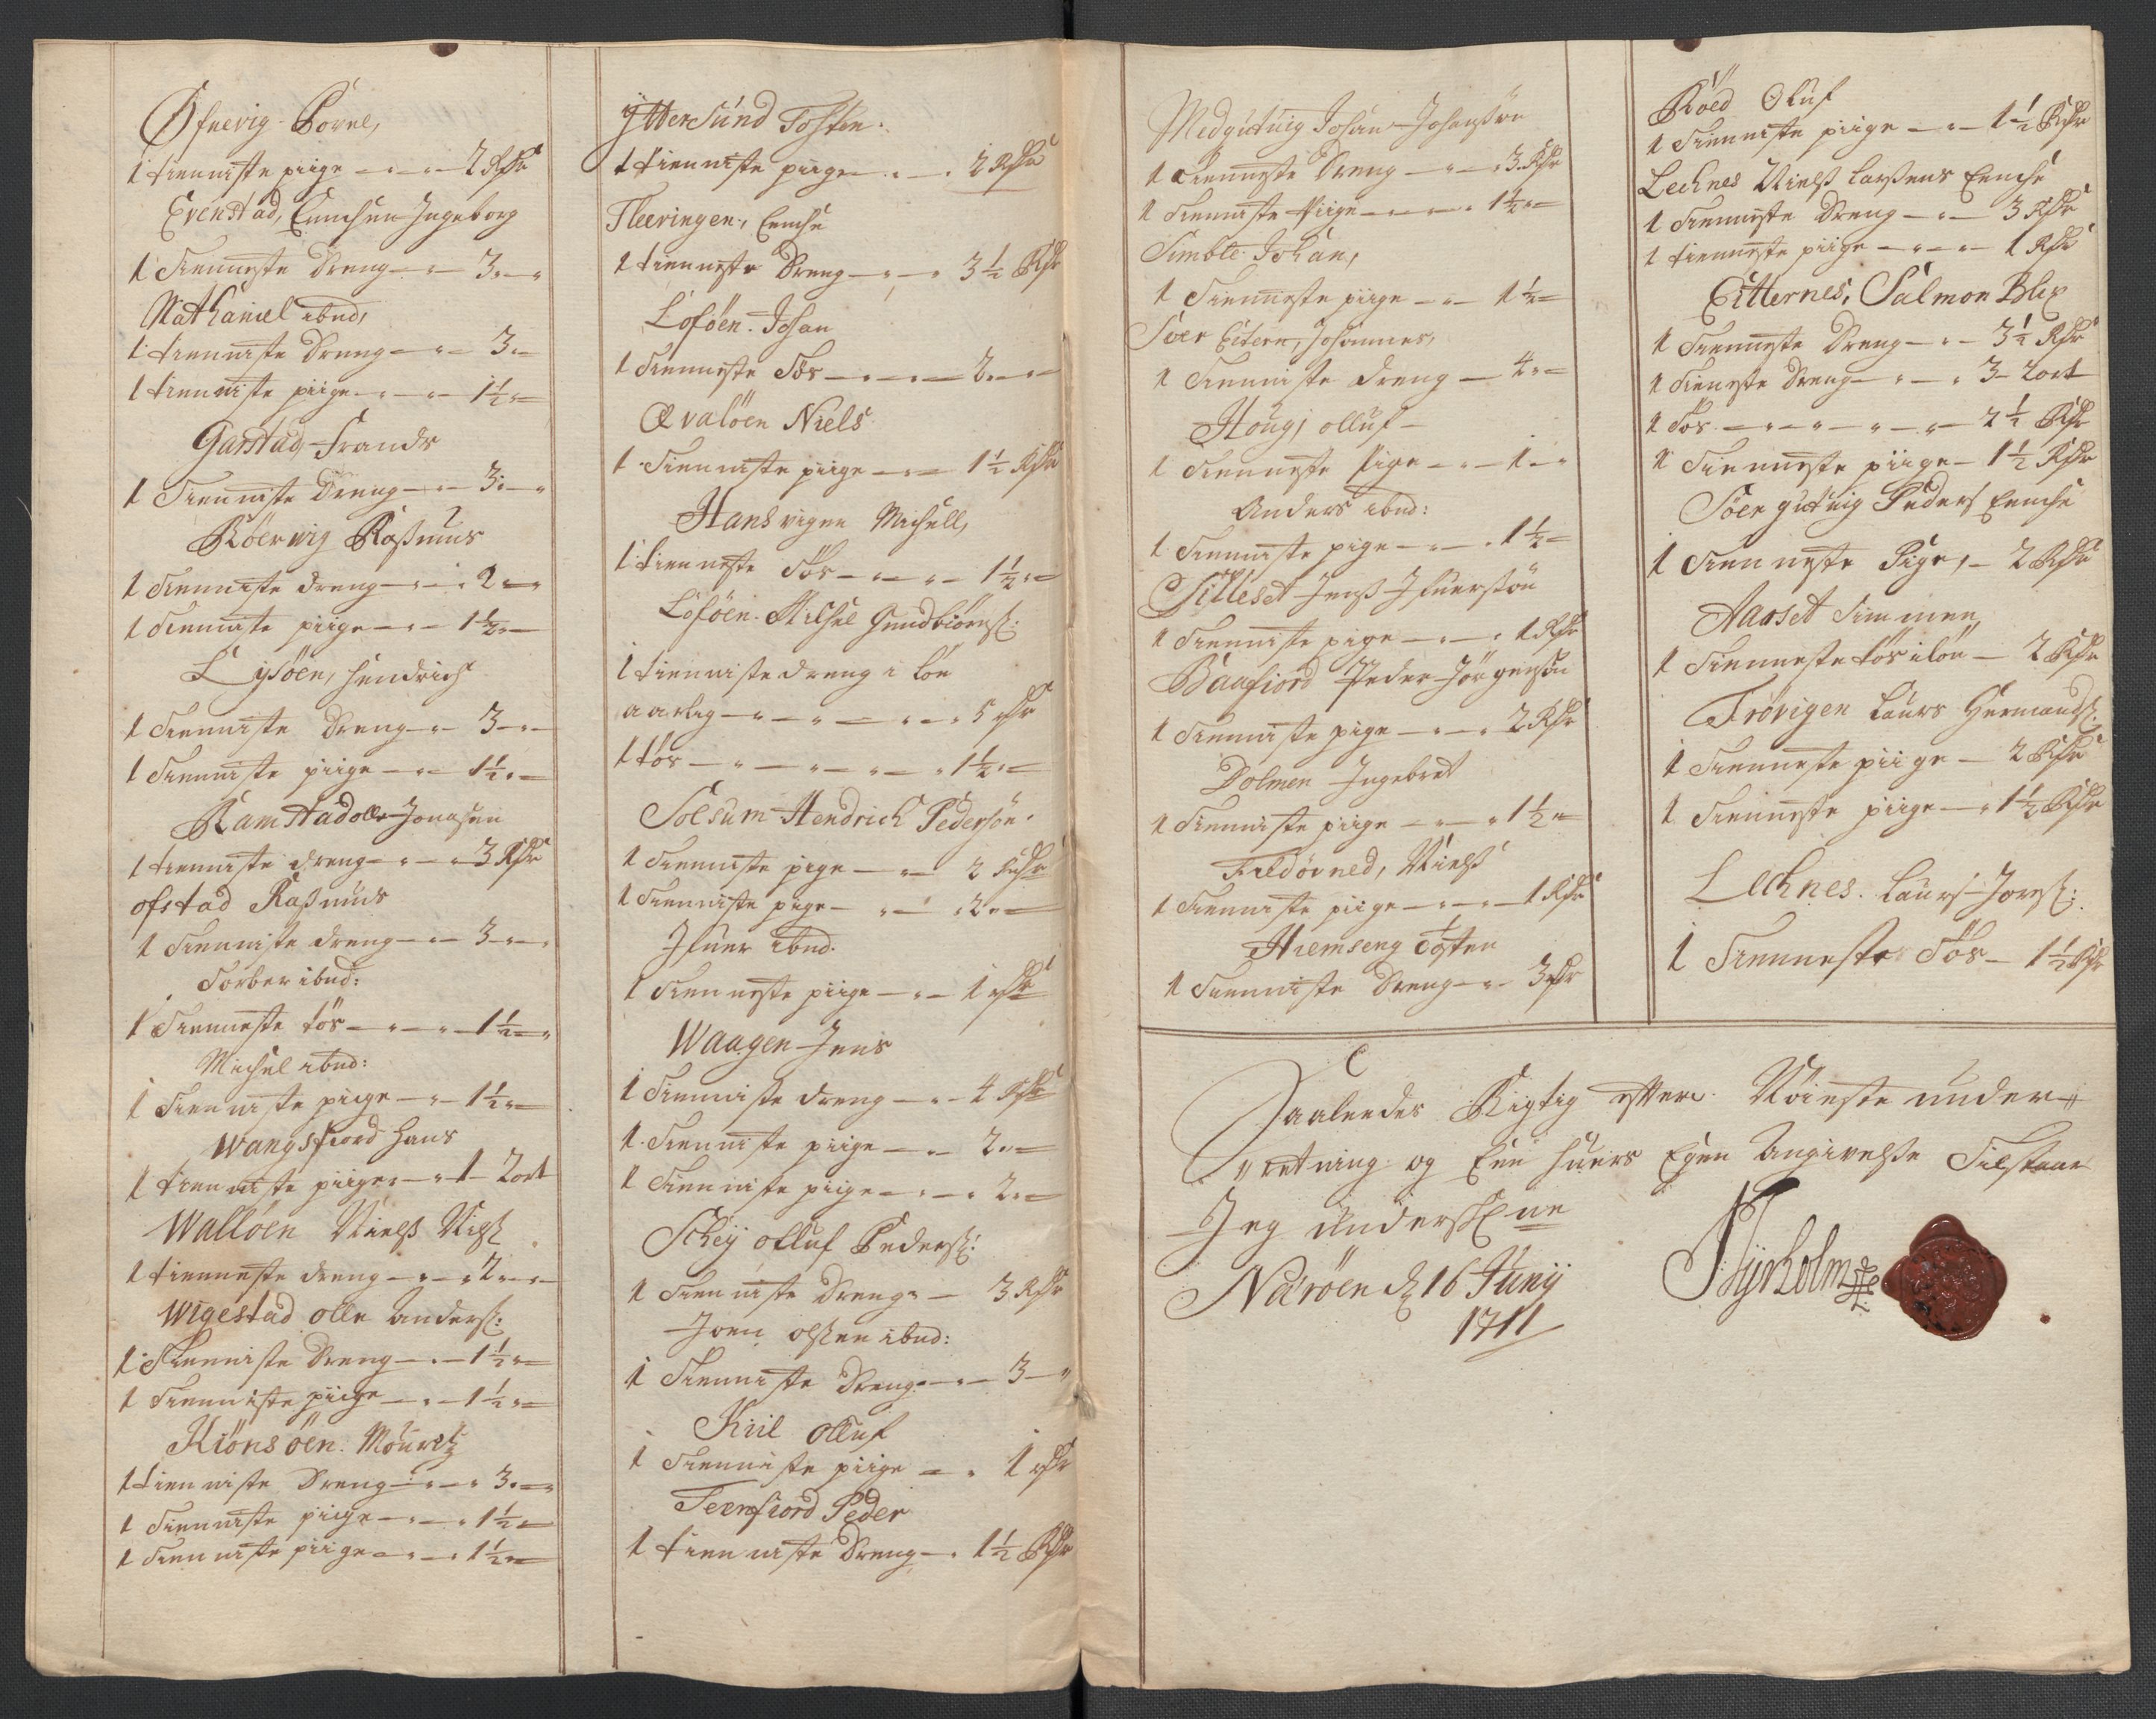 Øfuevig Borel,
1 tienniste piige — " — 2 Rdr
Evenstad, Enncken Ingeborg
1 Tienneste Dreng — " — 3 " — "
Nathaniel ibnd,
1 tienniste Dreng — " — 3 " —
1 tienniste piige — " — " — 1½ " —
Garstad Frands
1 Tienniste Dreng — " — 3 " — "
Röerwig Rasmus
1 Tienniste dreng — " — 2 " — "
1 Tienniste piige — " — 1½ " —
Lysöen, Hendrich
1 Tienniste Dreng — " — 3 — " —
1 Tienniste piige — " — 1½ " —
Ramstad olle Jonasen
1 tienniste dreng — " — " 3 Rdr
ofstad Rasmus
1 Tienniste dreng — " — 3 — " — "
Torber ibnd:
1 Tienneste tös — " — " — 1½ — "
Michel ibnd:
1 Tienniste piige — " — 1½ " —
Wangsfiord Hans
1 tienniste piige " — " 1 — 2 ort
Wallöen Niels Nilss
1 tienneste dreng — " — " 2 — " —
Wigestad olle Anderss:
1 Tienniste Dreng — " — 1½ " —
1 Tienniste piige — " — 1½ " —
Kiönsöen. Mouritz
1 tienniste Dreng — " — " 3 " — "
1 Tienniste piige — " — " 1½ —
1 Tienniste piige — " — " 1½ " —
Yttersund Tosten.
1 tienniste piige — " — " 2 Rdr
Fleeringen, Encke
1 tienneste Dreng — " — " 3½ Rdr
Loföen. Johan
1 Tienneste Tös — " — " — 2 " — " —
Qvalöen Niels
1 Tienniste piige — " — 1½ Rdr
Hansvigen Michell,
1 tienneste Tös — " — " — 1½ " —
Loföen. Michel Gundbiörnss:
1 tienniste dreng i lön
aarlig — " — " — " — " 5 rdr
1 tös — " — " — " — " 1½ " —
Solsum Hendrich Pedersön.
1 Tienniste pige — " — 2 Rdr
1 Tienniste pige — " — " 2 " —
Ifuer ibnd.
1 Tienneste piige — " — 1 rdr
Waagen Jens
1 Tienniste dreng — " — 4 Rdr
1 Tienniste piige — " — 2 " —
1 Tienniste piige — " — " 2 " —
Schey olluf Pederss:
1 Tienniste Dreng " — 3 Rdr
Joen olssen ibnd:
1 Tienniste Dreng — " — 3 — "
Kiil olluf
1 Tienniste piige — " 1 rdr
Teenfiord Peder
1 tienniste Dreng — " 1½ Rdr
Medgutuig Johan Johansön
1 Tienneste Dreng — " — " 3 Rdr
1 Tienniste Piige — " — " 1½ " —
Simble Johan,
1 Tienneste piige — " — 1½ —
Söer Eitern, Johannes,
1 Tienniste dreng — 4 " —
Houg, olluf —
1 Tienneste Pige — " — 1 — "
Anders ibnd:
1 Tienniste pige — " — " 1½ —
Silleset Jens Ifuersön
1 Tienniste pige — " — " 1 Rdr
Baafiord Peder Jörgensön
1 Tienniste pige — " — " 2 Rdr
Dolmen Ingebret
1 Tienniste piige — " — " 1½ " —
Fieldörned, Niels
1 Tienniste piige — " — " — 1 Rdr
Hiemseng Tosten
1 Tienniste Dreng — " — 3 rdr
Röed Oluf
1 Tienniste piige — " — 1½ Rdr
Lechnes Niels Larsens Encke
1 Tienniste Dreng — " — 3 Rdr
1 tienneste piige — " — " — 1 Rdr
Eitternes, Salmon Blix
1 Tienneste Dreng — " — 3½ Rdr
1 Tieneste Dreng — " — " 3 — 2 ort
1 Tös — " — " — " — " — 2½ Rdr
1 Tienneste piige — 1½ Rdr
Söer gutuig Peders Encke
1 Tienneste Pige, — 2 Rdr
Aarset Simmen
1 Tienneste tös i lön — 2 Rdr
Trövigen Laurs Hermands:
1 Tienneste piige — 2 Rdr
1 Tienneste piige — " 1½ Rdr
Lechnes. Laurs Jorss:
1 Tienneste Tös — 1½ Rdr
Saaleedes Rigtig effter Nöieste under-
retning og Een huers Egen Angivelse Tilstaar
Jeg underssne
Nærøen d 16 Junij
1711
Hyrholm